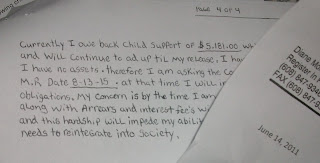 PAGE 4 OF 4
Currently I owe back child support of $5,181.00
and will continue to ad up til my release. I
I have no assets. therefore I am asking the
M.R Date 8-13-15. at that time I will
obligations. My concern is by the time I am
along with Arrears and interest fee's
and this hardship will impede my
needs to reintegrate into Society.
Diane
Register in
(608) 847-
FAX (608) 847-9
June 14, 2011